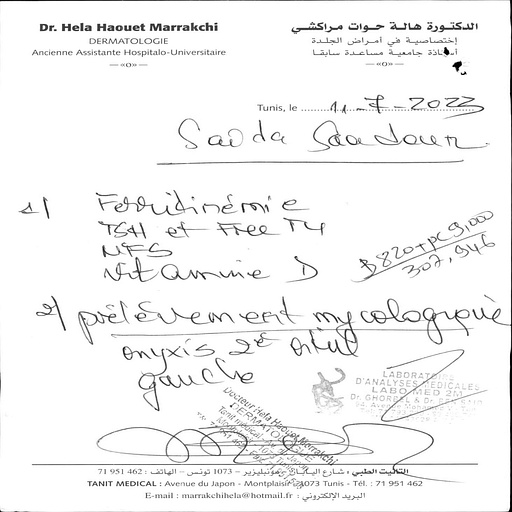 Dr. Hela Haouet Marrakchi
DERMATOLOGIE
Ancienne Assistante Hospitalo-Universitaire
—«o»—
الدكتورة هالة حوات مراكشي
إختصاصية في أمراض الجلدة
أستاذة جامعية مساعدة سابقا
—«o»—
Tunis, le 11-7-2023
Saida Saadoun
1/ Ferritinémie
TSH et Free T4
NFS
Vitamine D
307,946
2/ prélévement mycologique
onyxis 2e orteil
gauche
LABORATOIRE
D'ANALYSES MEDICALES
LABO MED 2M
Docteur Hela Haouet Marrakchi
DERMATOLOGUE
التانيت الطبي : شارع اليابان - مونبليزير - 1073 تونس - الهاتف : 462 951 71
TANIT MEDICAL : Avenue du Japon - Montplaisir - 1073 Tunis - Tél. : 71 951 462
E-mail : marrakchihela@hotmail.fr : البريد الإلكتروني